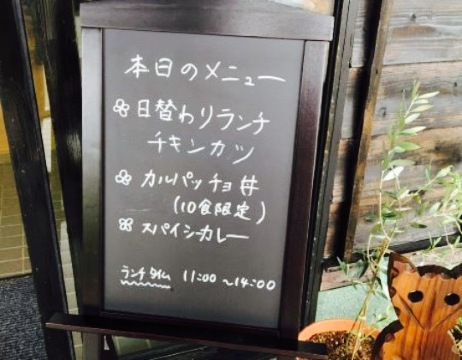 本日のメニュー
日替わりランチ
チキンカツ
カルパッチョ丼
(10食限定)
スパイシーカレー
ランチタイム 11:00~14:00